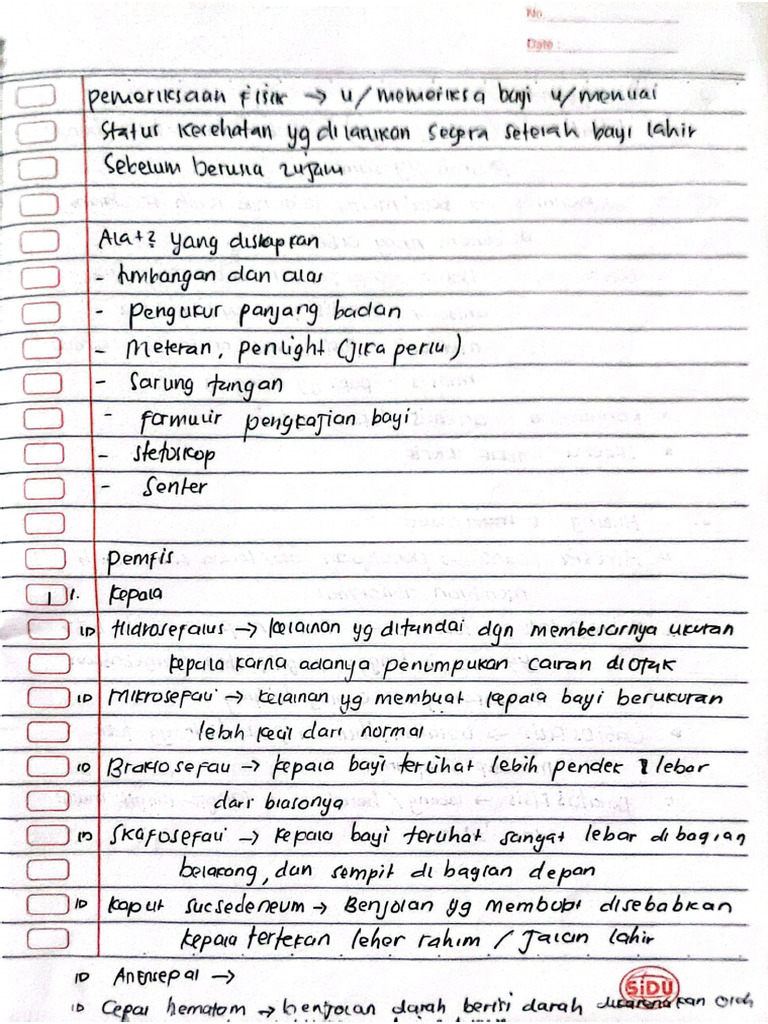 No
Date :
pemeriksaan fisik → u/memeriksa bayi u/menilai
Status kesehatan yg dilakukan segera setelah bayi lahir
Sebelum berusia 24jam
Alat² yang disiapkan
- timbangan dan alas
- pengukur panjang badan
- Meteran, penlight (jika perlu)
- Sarung tangan
- formulir pengkajian bayi
- stetoskop
- Senter
pemfis
1 1. kepala
Hidrosefalus → kelainan yg ditandai dgn membesarnya ukuran
kepala karna adanya penumpukan cairan diotak
Mikrosefali → kelainan yg membuat kepala bayi berukuran
lebih kecil dari normal
Brakiosefali → kepala bayi terlihat lebih pendek & lebar
dari biasanya
Skafosefali → kepala bayi terlihat sangat lebar dibagian
belakang, dan sempit di bagian depan
Kaput sucsedeneum → Benjolan yg disebabkan
kepala tertekan leher rahim / jalan lahir
Anensepal →
SiDU
Cepal hematom → benjolan darah berisi darah oleh